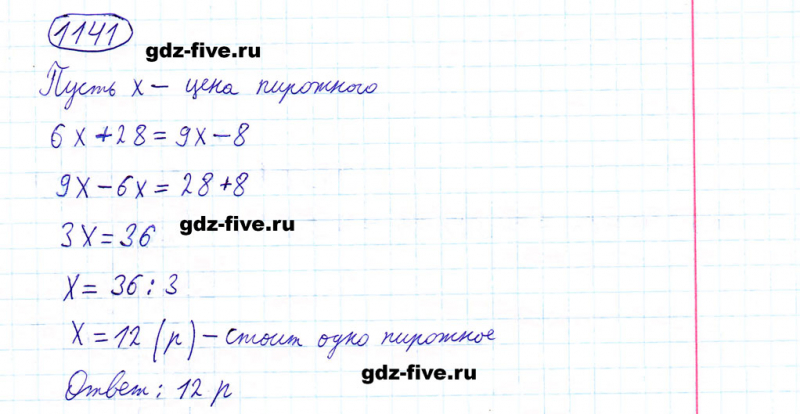 1141
gdz-five.ru
Пусть x – цена пирожного
6x+28=9x–8
9x–6x=28+8
3x=36
gdz-five.ru
x=36:3
x=12 (р) – стоит одно пирожное
gdz-five.ru
Ответ: 12 р